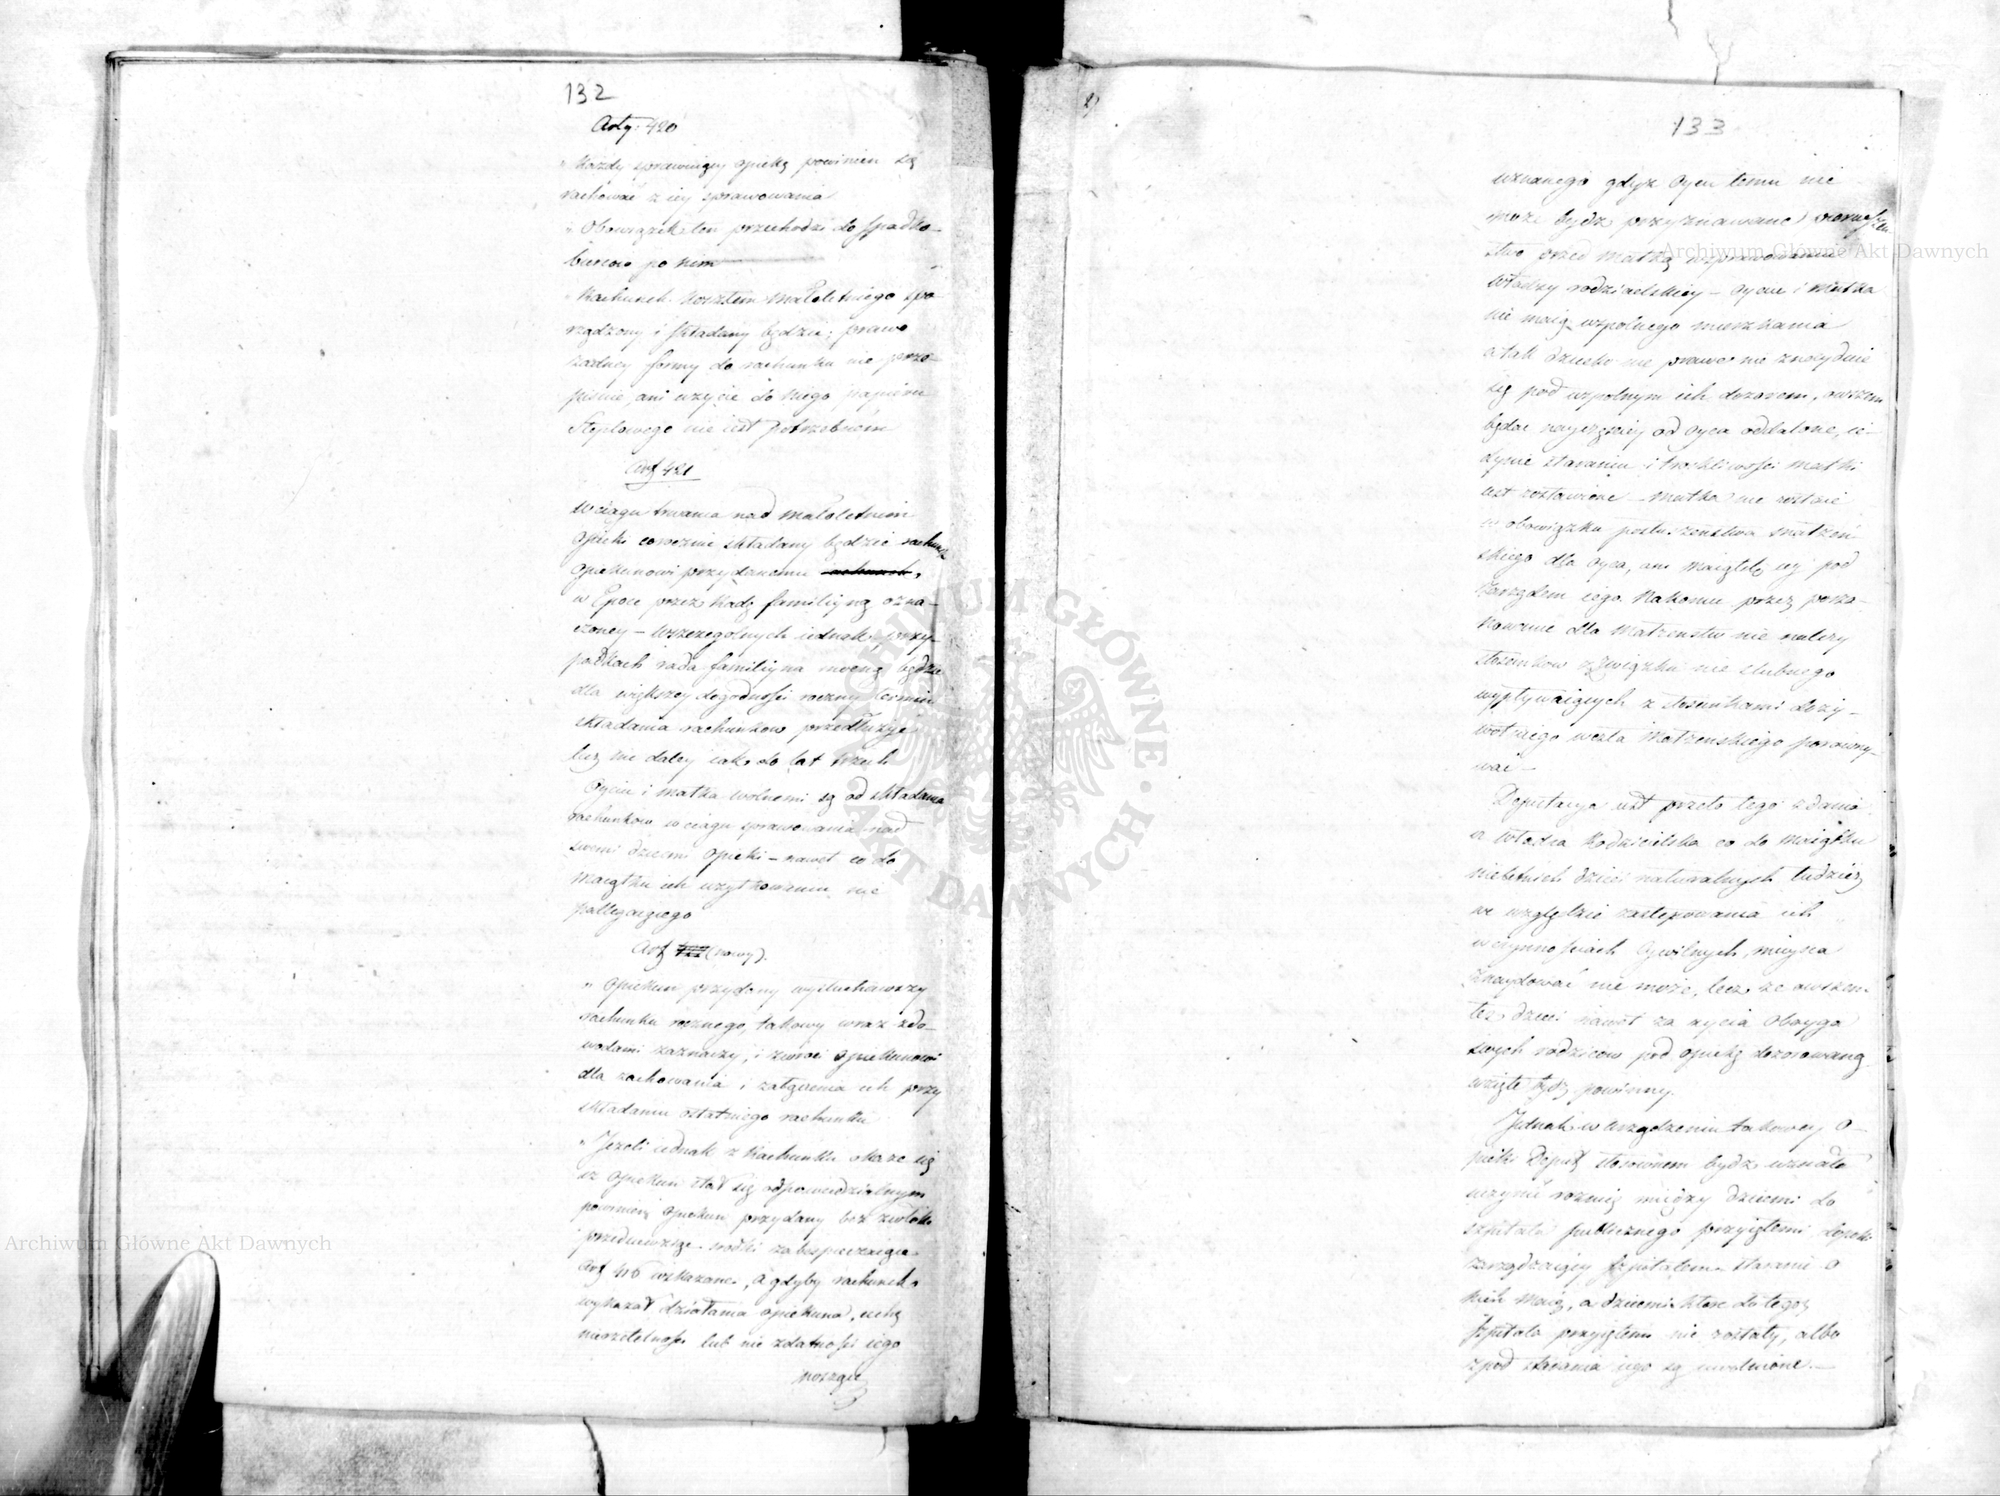 132
Arty: 420
" Każdy sprawuiący opiekę powinien się
rachować z iey sprawowania
" Obowiązek ten przechodzi do spadko-
bierców po nim
" Rachunek kosztem małoletniego spo-
rządzony i składany będzie; prawo
żadney formy do rachunku nie prze-
pisuie, ani użycie do niego papieru
Steplowego nie iest potrzebnem
Art 421
W ciągu trwania nad małoletnim
opieki corocznie składany będzie rachunek
opiekunowi przydanemu rachunek,
w Epoce przez Radę familiyną ozna-
czoney - w szczególnych iednak przy-
padkach rada familiyna mocną będzie
dla większey dogodności roczny termin
składania rachunków przedłużyć
lecz nie daley iak do lat trzech
Oyciec i matka wolnemi są od składania
rachunków w ciągu sprawowania nad
swemi dziećmi opieki - nawet co do
maiątku ich użytkowaniu nie
podlegaiącego
Art 422 (nowy).
" Opiekun przydany wysłuchawszy
rachunku rocznego, takowy wraz z do-
wodami zaznaczy, i zwróci opiekunowi
dla zachowania i załączenia ich przy
składaniu ostatniego rachunku
" Jeżeli iednak z Rachunku okaże się
iż opiekun stał się odpowiedzialnym
powinien opiekun przydany bez zwłoki
przedsięwziąć środki zabespieczaiące
Art 416 wskazane, a gdyby rachunek
wykazał działania opiekuna, cechę
nierzetelności lub nie zdatności iego
noszące
133
uznanego gdyż Oycu temu nie
może bydź przyznawane pierwszeń-
stwo przed Matką w sprawowaniu
Władzy rodzicielskiey - Oyciec i Matka
nie maią wspólnego mieszkania
a tak dziecko nie prawe nie znayduie
się pod wspólnym ich dozorem, owszem
będąc nayczęściey od Oyca oddalone, ie-
dynie staraniu i troskliwości Matki
iest zostawione - Matka nie zostaie
w obowiązku posłuszeństwa małżeń-
skiego dla Oyca, ani maiątek iey pod
Zarządem iego. Nakoniec przez posza-
nowanie dla Małżeństw nie należy
stosunków z związku nie ślubnego
wypływaiących z stosunkami doży-
wotniego węzła Małżeńskiego porówny-
wać -
Deputacya iest przeto tego zdania
iż Władza Rodzicielska co do maiątku
nieletnich dzieci naturalnych tudzież
we względzie zastępowania ich
w czynnościach Cywilnych, mieysca
znaydować nie może, lecz że owszem
też dzieci nawet za życia Oboyga
swych rodziców pod opiekę dozorowaną
wzięte bydź powinny.
Jednak w urządzeniu takowey O-
pieki Deput stosownem bydź uznała
uczynić różnicę między dziećmi do
szpitala publicznego przyiętemi dopóki
zarządzaiący szpitalem staranie o
nich maią, a dziećmi które do tegoż
szpitala przyiętemi nie zostały, albo
z pod starania iego są uwolnione. -